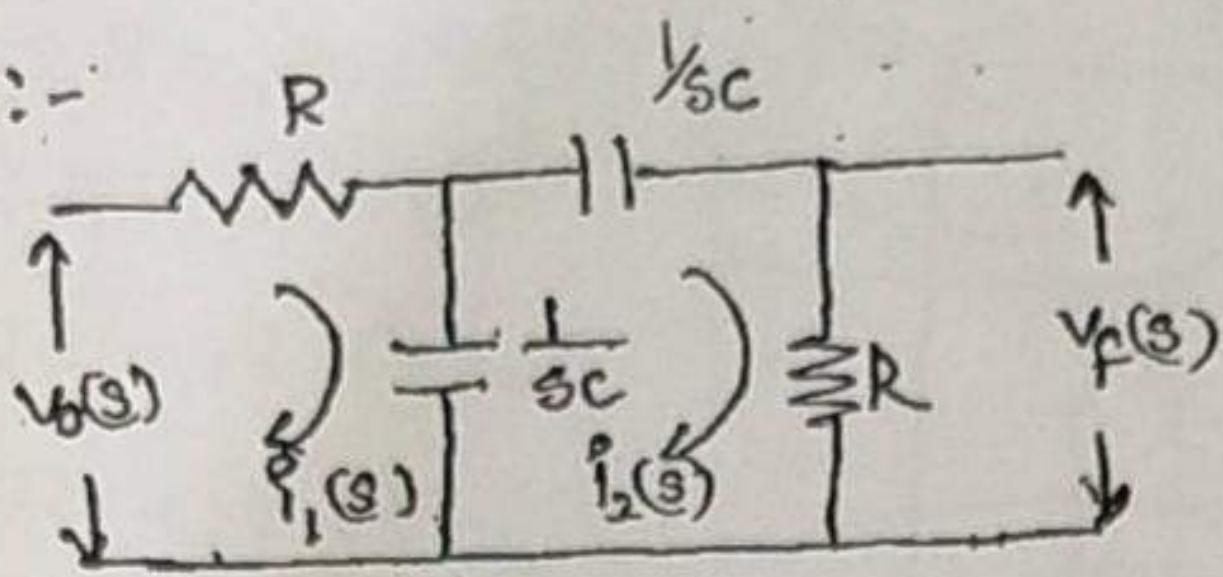 :-
R
1/SC
V₀(s)
i₁(s)
1/SC
i₂(s)
R
Vf(s)